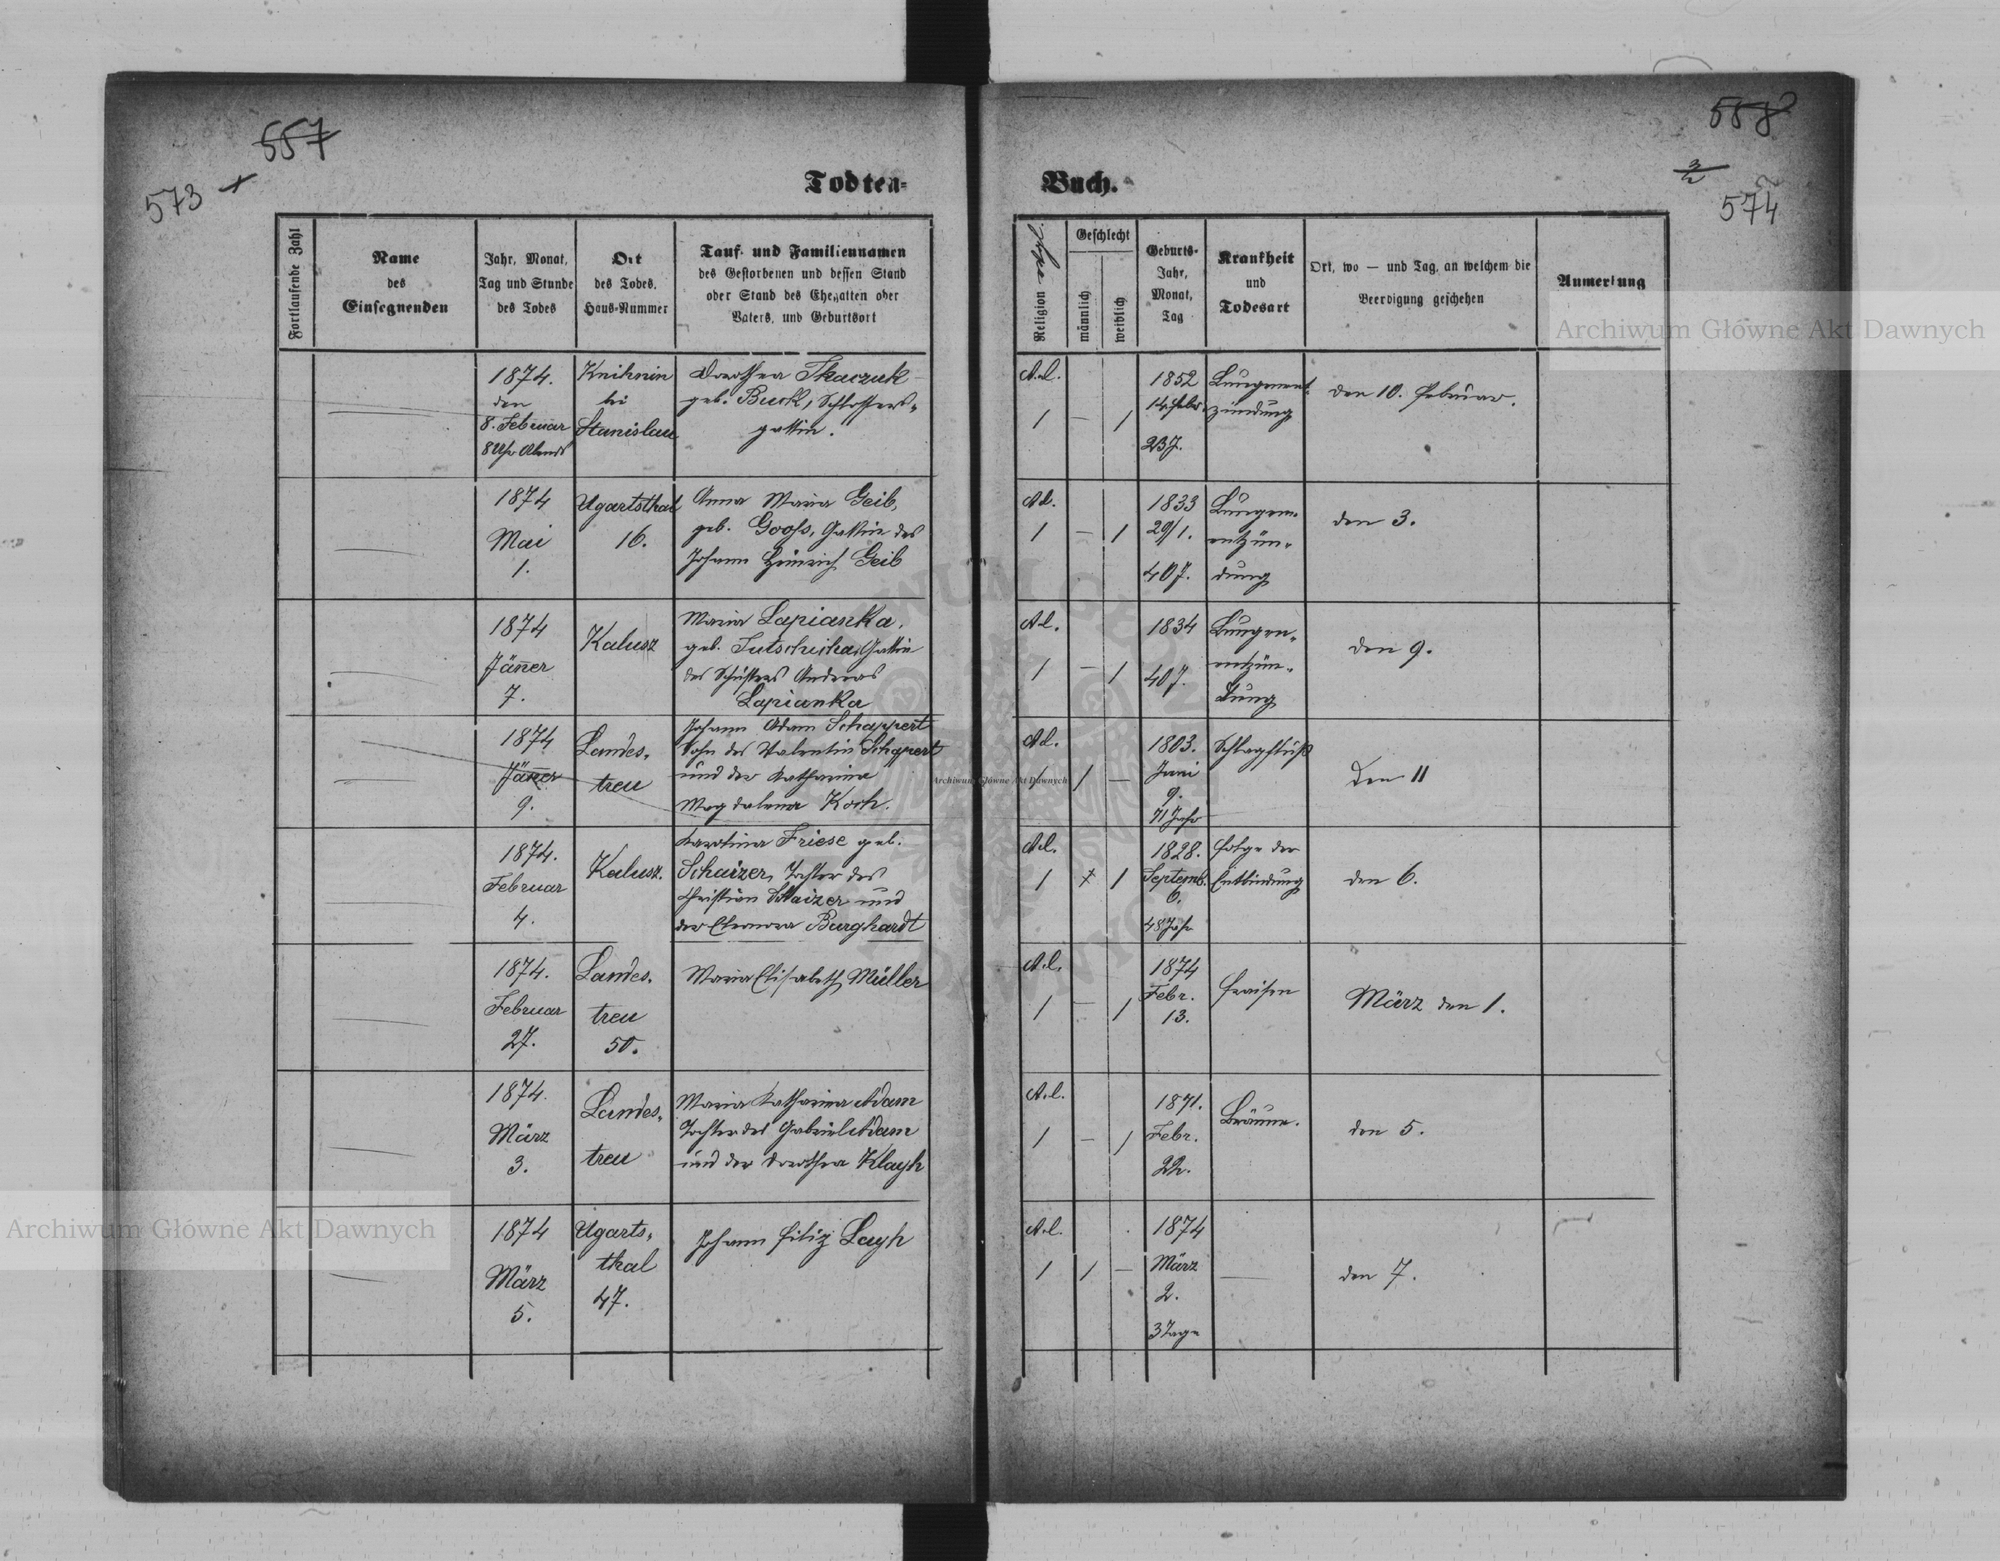 557
573
558
574
Todten-
Buch.
Fortlaufende Zahl
Name
des
Einsegnenden
Jahr, Monat,
Tag und Stunde
des Todes
Ort
des Todes,
Haus-Nummer
Tauf- und Familiennamen
des Gestorbenen und dessen Stand
oder Stand des Ehegatten oder
Vaters, und Geburtsort
Religion
Geschlecht
männlich
weiblich
Geburts-
Jahr,
Monat,
Tag
Krankheit
und
Todesart
Ort, wo — und Tag, an welchem die
Beerdigung geschehen
Anmerkung
1874.
den
8. Februar
8 Uhr Abends
Knihnin
bei
Stanislau
Dorothea Tkaczuk
geb. Burk, Schlossers-
gattin.
A.C.
1 — 1
1852
14. Febr.
23 J.
Lungenent-
zündung
den 10. Februar.
1874
Mai
1.
Ugartsthal
16.
Anna Maria Geib,
geb. Gooss, Gattin des
Johann Heinrich Geib
A.C.
1 — 1
1833
29/1.
40 J.
Lungen-
entzün-
dung
den 3.
1874
Jäner
7.
Kalusz
Maria Lapianka,
geb. Gattin
des Schusters Andreas
Lapianka
A.C.
1 — 1
1834
40 J.
Lungen-
entzün-
dung
den 9.
1874
Jäner
9.
Landes-
treu
Johann Adam Schappert
Sohn des Valentin Schapert
und der Katharina
Magdalena Koch.
A.C.
1 1 —
1803.
Juni
9.
71 Jahr
Schlagfluß
den 11
1874.
Februar
4.
Kalusz.
Karolina Friese geb.
Schaizer, Tochter des
Christian Schaizer und
der Eleonora Burghardt
A.C.
1 1
1828.
Septemb.
6.
48 Jahr
Folge der
Entbindung
den 6.
1874.
Februar
27.
Landes-
treu
50.
Maria Elisabeth Müller
A.C.
1 — 1
1874
Febr.
13.
Fraisen
März den 1.
1874.
März
3.
Landes-
treu
Maria Katharina Adam
Tochter des Gabriel Adam
und der Dorothea Klayh
A.C.
1 — 1
1871.
Febr.
22.
Bräune.
den 5.
1874
März
5.
Ugarts-
thal
47.
Johann Filiz Layh
A.C.
1 1 —
1874
März
2.
3 Tage
—
den 7.
Archiwum Główne Akt Dawnych
Archiwum Główne Akt Dawnych
Archiwum Główne Akt Dawnych